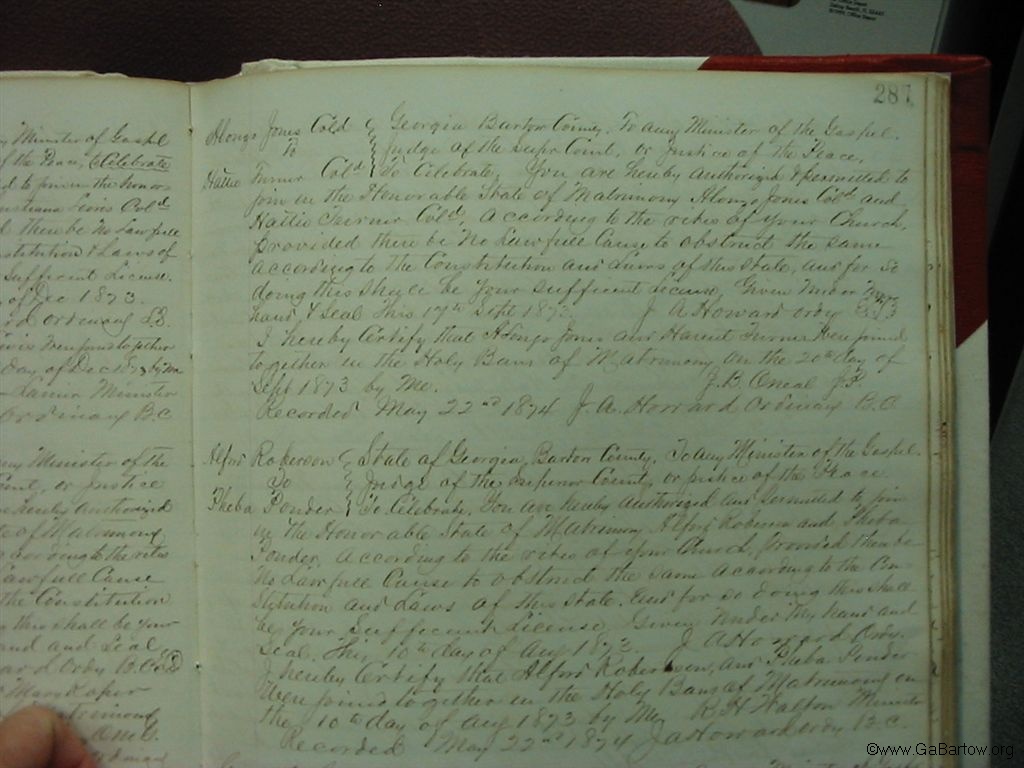 287
Minister of Gospel
of the Peace, to Celebrate
d to join in the Honor
Lewis Cold
there be no Lawfull
stitution & Laws of
Sufficient License.
of Dec 1873.
rd Ordinary L.S.
were joined together
day of Dec 1873 by Me
Minister
Ordinary B.C
any Minister of the
Court, or Justice
hereby Authorized
te of Matrimony
according to the rites
Lawfull Cause
the Constitution
this shall be your
and and Seal
ard Ordy B.C.
Mary
Matrimony
Alonzo Jones Cold Georgia Bartow County. To any Minister of the Gospel.
To Judge of the Supr Court, or Justice of the Peace,
Hattie Turner Cold To Celebrate, You are hereby Authorized & permitted to
join in the Honorable State of Matrimony Alonzo Jones Cold and
Hattie Turner Cold, According to the rites of your Church,
provided there be No Lawfull Cause to obstruct the same
according to the Constitution and Laws of this State, and for so
doing this shall be your Sufficient License, Given Under My
hand & Seal this 17th Sept 1873. J A Howard Ordy
I hereby Certify that Alonzo Jones and Turner Were joined
together in the Holy Bans of Matrimony on the 20th day of
Sept 1873 by Me. J. B. Oneal J.P.
Recorded May 22nd 1874 J. A. Howard Ordinary B.C.
Alford Roberson State of Georgia, Bartow County. To any Minister of the Gospel.
To Judge of the Superior Court, or justice of the Peace
Pheba Ponder To Celebrate. You are hereby Authorized and permitted to join
in the Honorable State of Matrimony Alford Roberson and Pheba
Ponder, According to the rites of your Church, Provided there be
No Lawfull Cause to obstruct the same According to the Con-
stitution and Laws of this State. And for so doing this shall
be your Sufficient License, Given Under My hand and
Seal. This 10th day of Aug 1873. J A Howard Ordy.
I hereby Certify that Alford Roberson, and Pheba Ponder
Were joined together in the Holy Bans of Matrimony on
the 10th day of Aug 1873 by Me R. H. Walton Minister
Recorded May 22nd 1874 J A Howard Ordy B.C.
©www.GaBartow.org